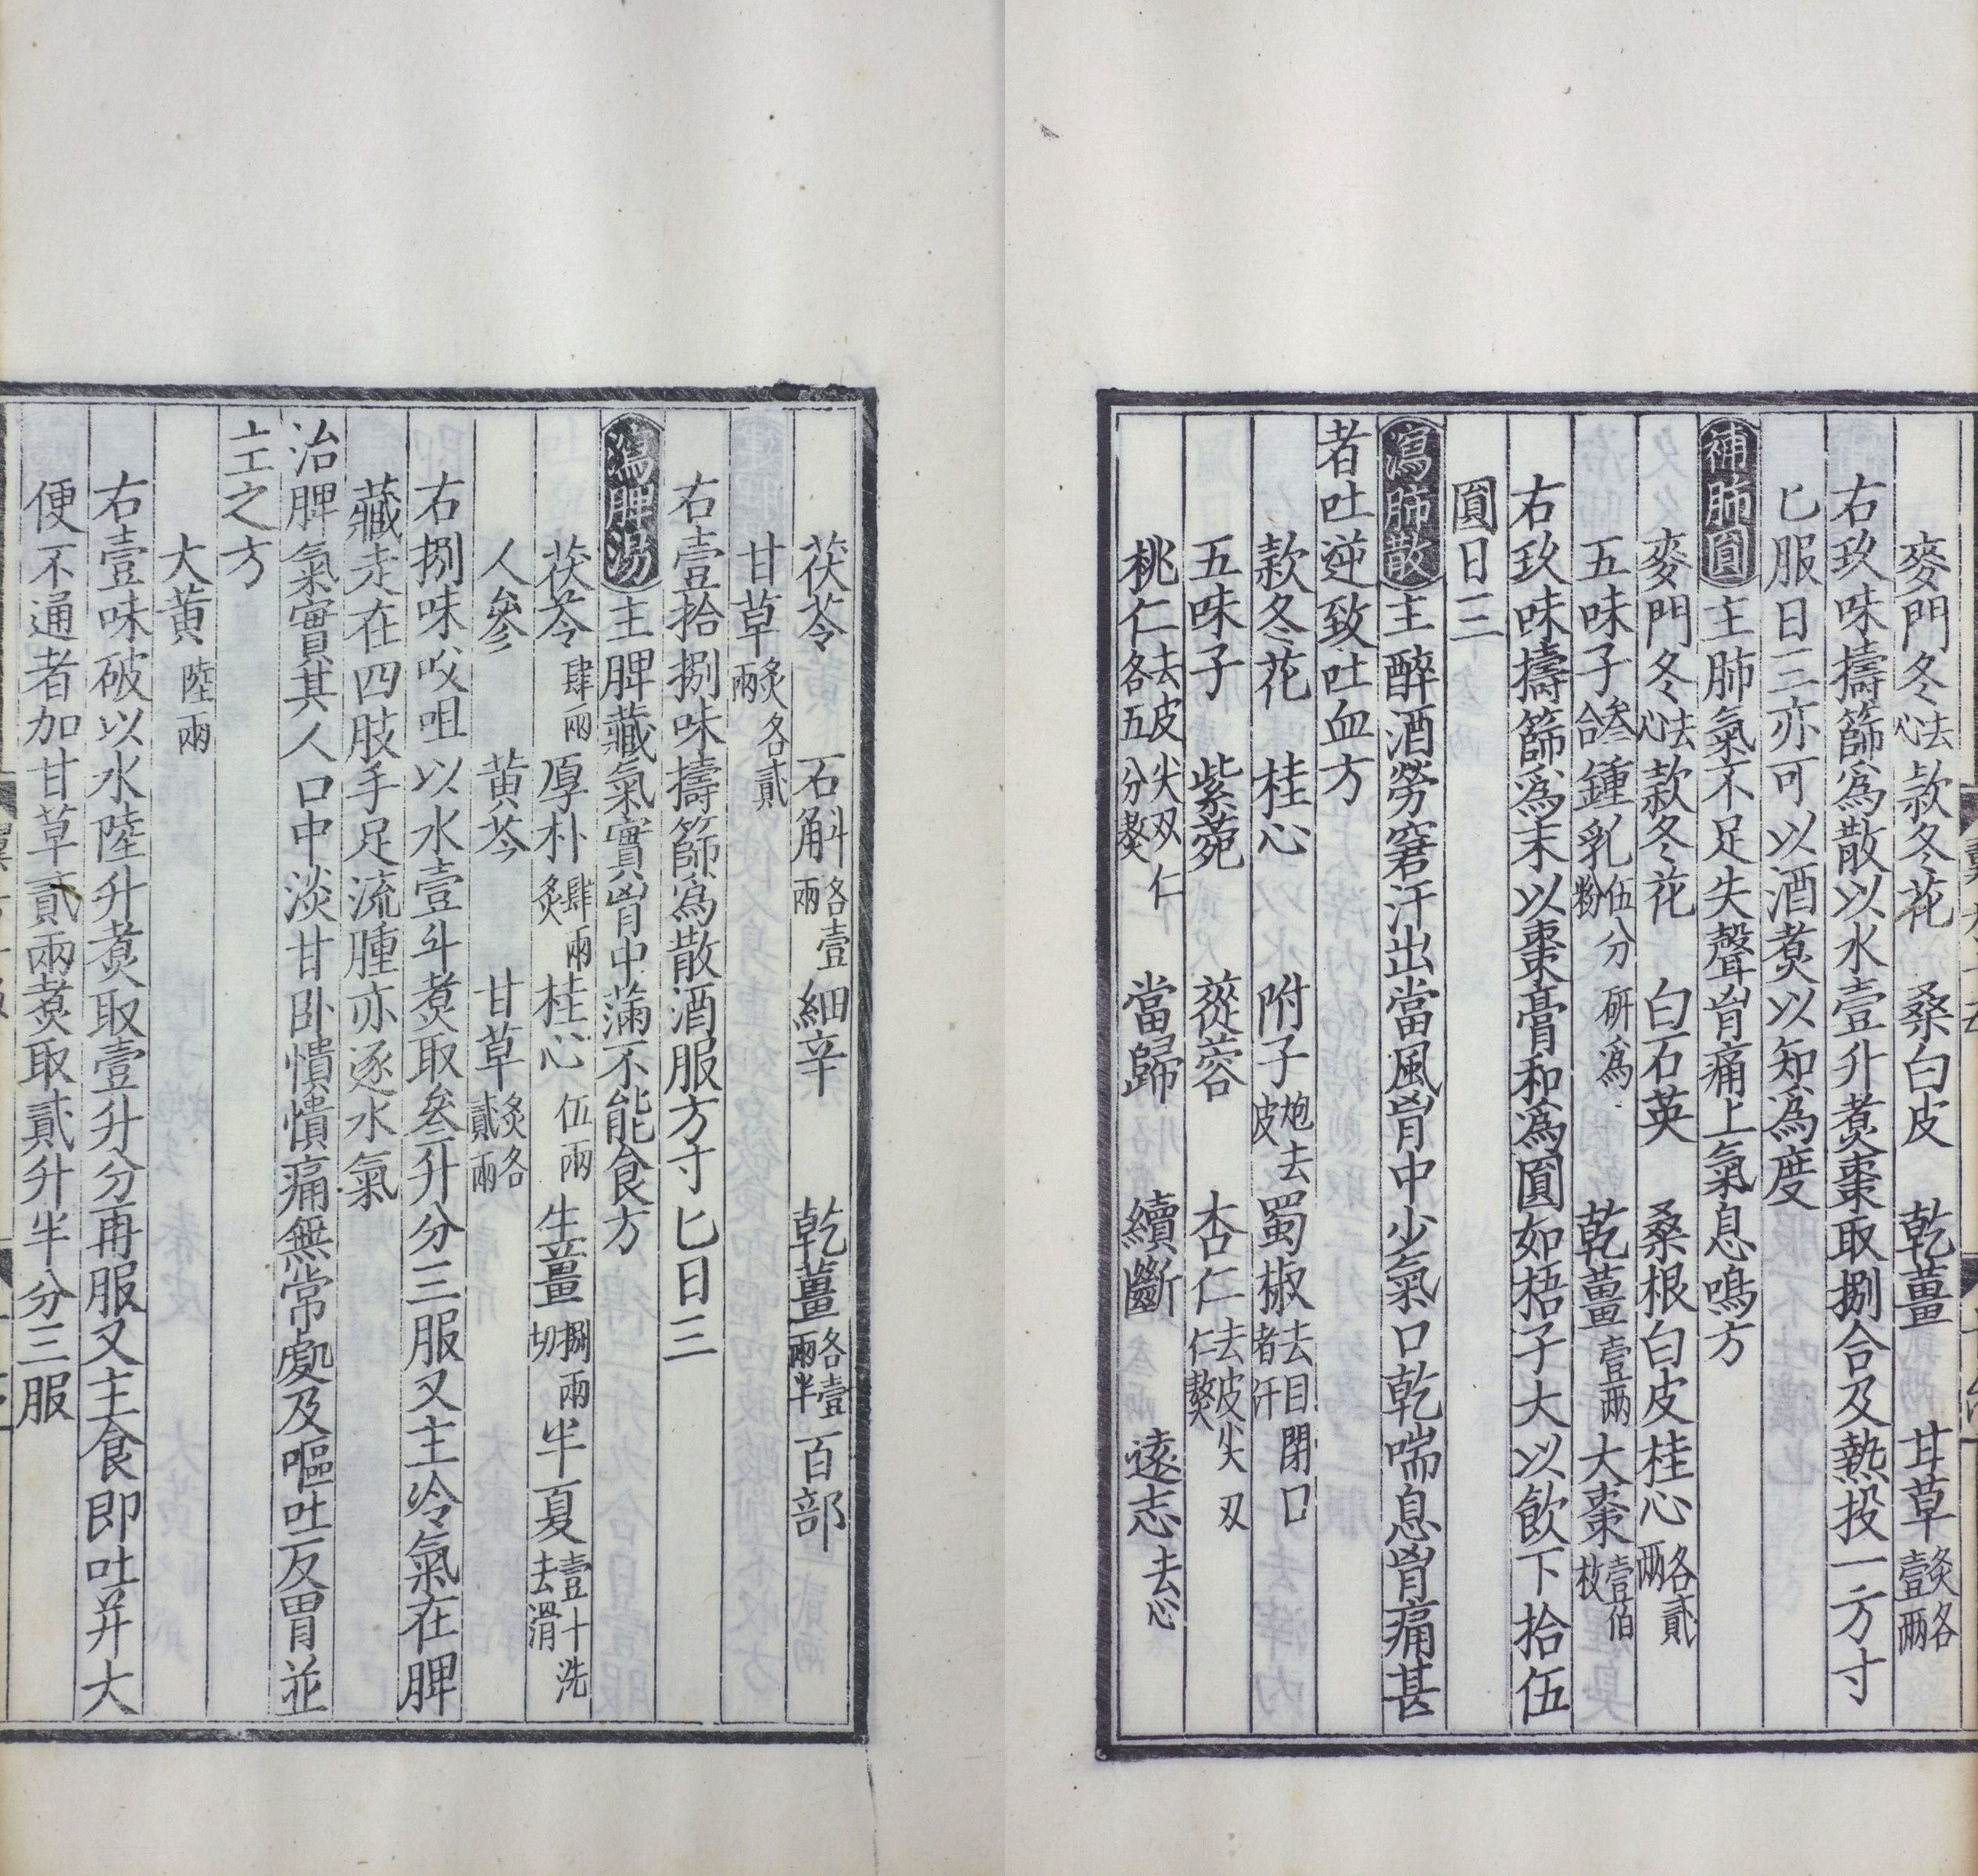 麥門冬去心 款冬花 桑白皮 乾薑 甘草炙各壹兩
右玖味擣篩爲散以水壹升煑棗取捌合及熱投一方寸
匕服日三亦可以酒煑以知爲度
補肺圓主肺氣不足失聲胷痛上氣息鳴方
麥門冬去心 款冬花 白石英 桑根白皮 桂心各貳兩
五味子叁合 鍾乳伍分研爲粉 乾薑壹兩 大棗壹伯枚
右玖味擣篩爲末以棗膏和爲圓如梧子大以飲下拾伍
圓日三
瀉肺散主醉酒勞窘汗出當風胷中少氣口乾喘息胷痛甚
者吐逆致吐血方
款冬花 桂心 附子炮去皮 蜀椒去目閉口者汗
五味子 紫菀 蓯蓉 杏仁去皮尖雙仁熬
桃仁去皮尖雙仁各五分熬 當歸 續斷 遠志去心
茯苓 石斛各壹兩 細辛 乾薑各壹兩半 百部
甘草炙各貳兩
右壹拾捌味擣篩爲散酒服方寸匕日三
瀉脾湯主脾藏氣實胷中滿不能食方
茯苓肆兩 厚朴肆兩炙 桂心伍兩 生薑捌兩切 半夏壹升洗去滑
人參 黄芩 甘草炙各貳兩
右捌味㕮咀以水壹斗煑取叁升分三服又主冷氣在脾
藏走在四肢手足流腫亦逐水氣
治脾氣實其人口中淡甘卧憒憒痛無常處及嘔吐反胃並
主之方
大黄陸兩
右壹味破以水陸升煑取壹升分再服又主食即吐并大
便不通者加甘草貳兩煑取貳升半分三服